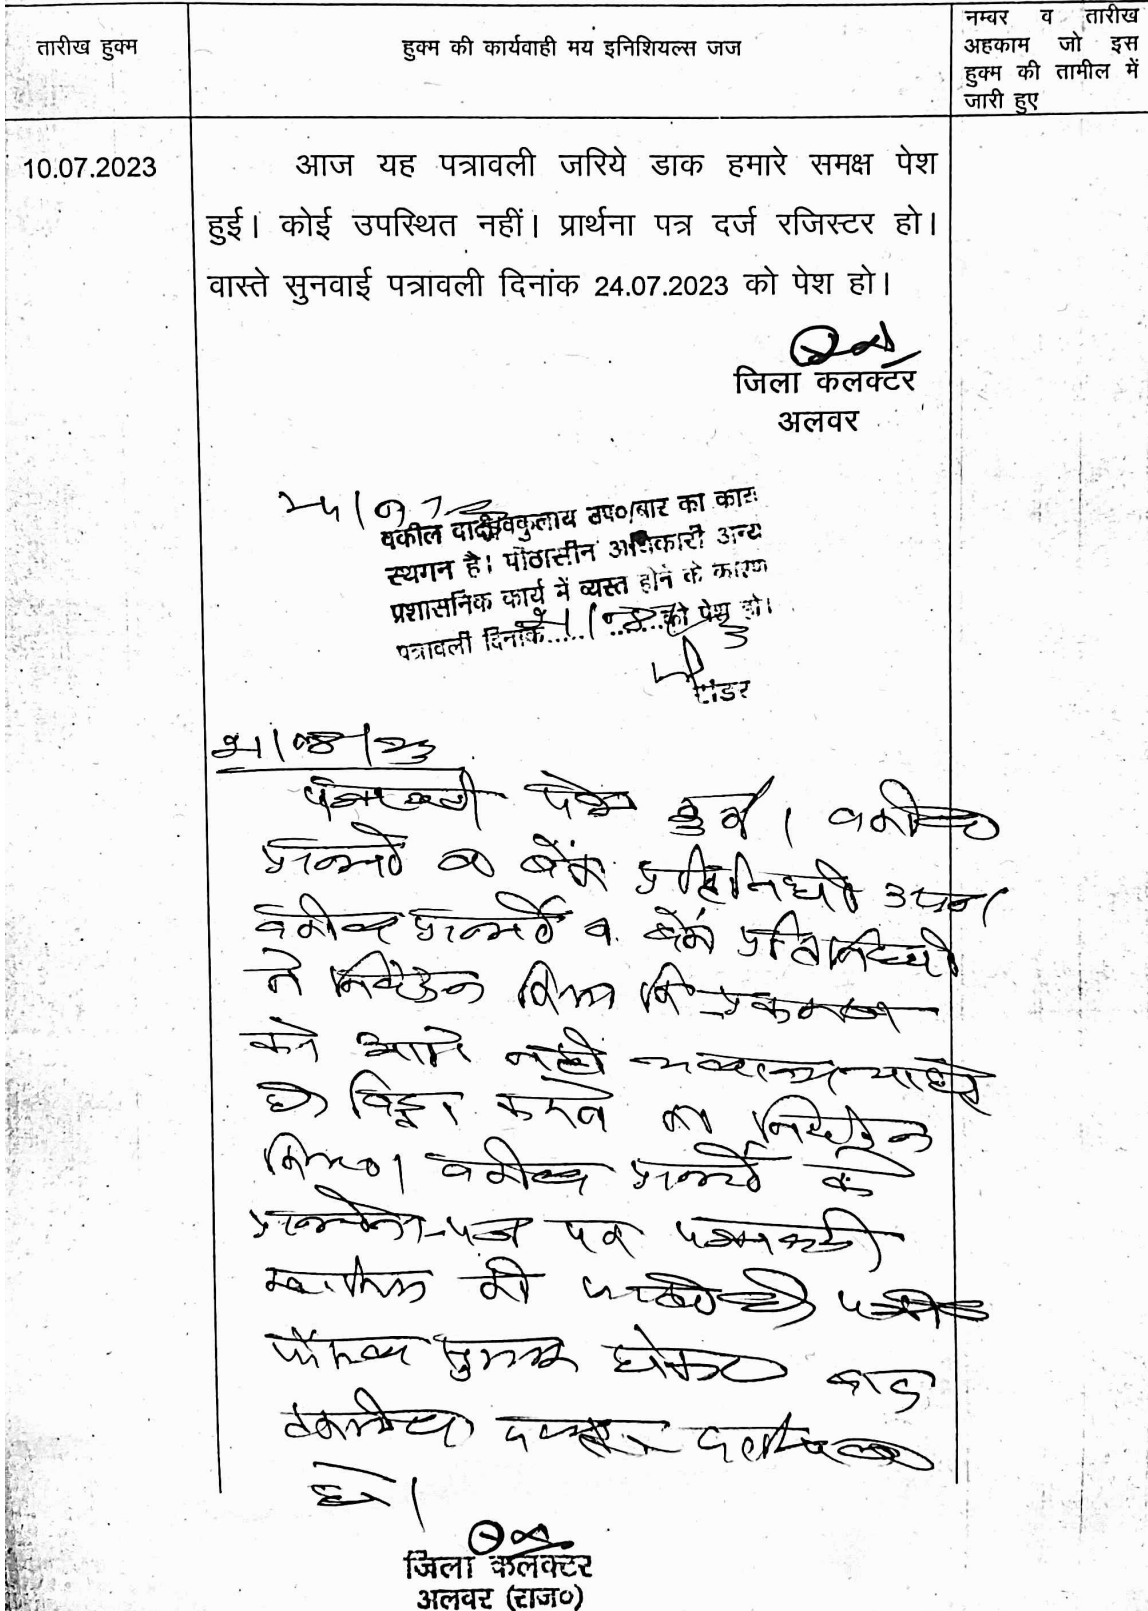 तारीख हुक्म
हुक्म की कार्यवाही मय इनिशियल्स जज
नम्बर व तारीख
अहकाम जो इस
हुक्म की तामील में
जारी हुए
10.07.2023
आज यह पत्रावली जरिये डाक हमारे समक्ष पेश
हुई। कोई उपस्थित नहीं। प्रार्थना पत्र दर्ज रजिस्टर हो।
वास्ते सुनवाई पत्रावली दिनांक 24.07.2023 को पेश हो।
जिला कलक्टर
अलवर
वकील उप०/बार का कार्य
स्थगन है। पीठासीन अधिकारी अन्य
प्रशासनिक कार्य में व्यस्त होने के कारण
पत्रावली दिनांक............को पेश हो।
पत्रावली पेश हुई। वकील
प्रार्थी व बैंक प्रतिनिधी उप०।
वकील प्रार्थी व बैंक प्रतिनिधी
ने निवेदन किया कि प्रकरण
को आगे नहीं चलाना चाहते
है। विड्रा करने का निवेदन
किया। वकील प्रार्थी के
प्रार्थना-पत्र पर पत्रावली
खारिज की जाती है।
फैसल शुमार होकर बाद
तकमील दफ्तर दाखिल
हो।
जिला कलक्टर
अलवर (राज०)